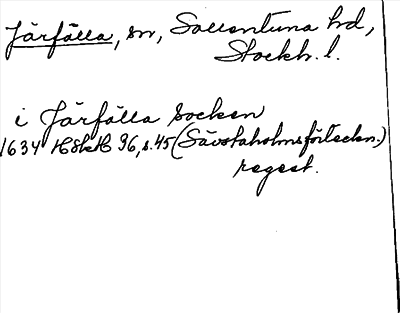 Järfälla, sn, Sollentuna hd,
Stockh. l.
i Järfälla socken
1634 HSkH 96, s. 45 (Sävstaholmsförteckn.)
regest.